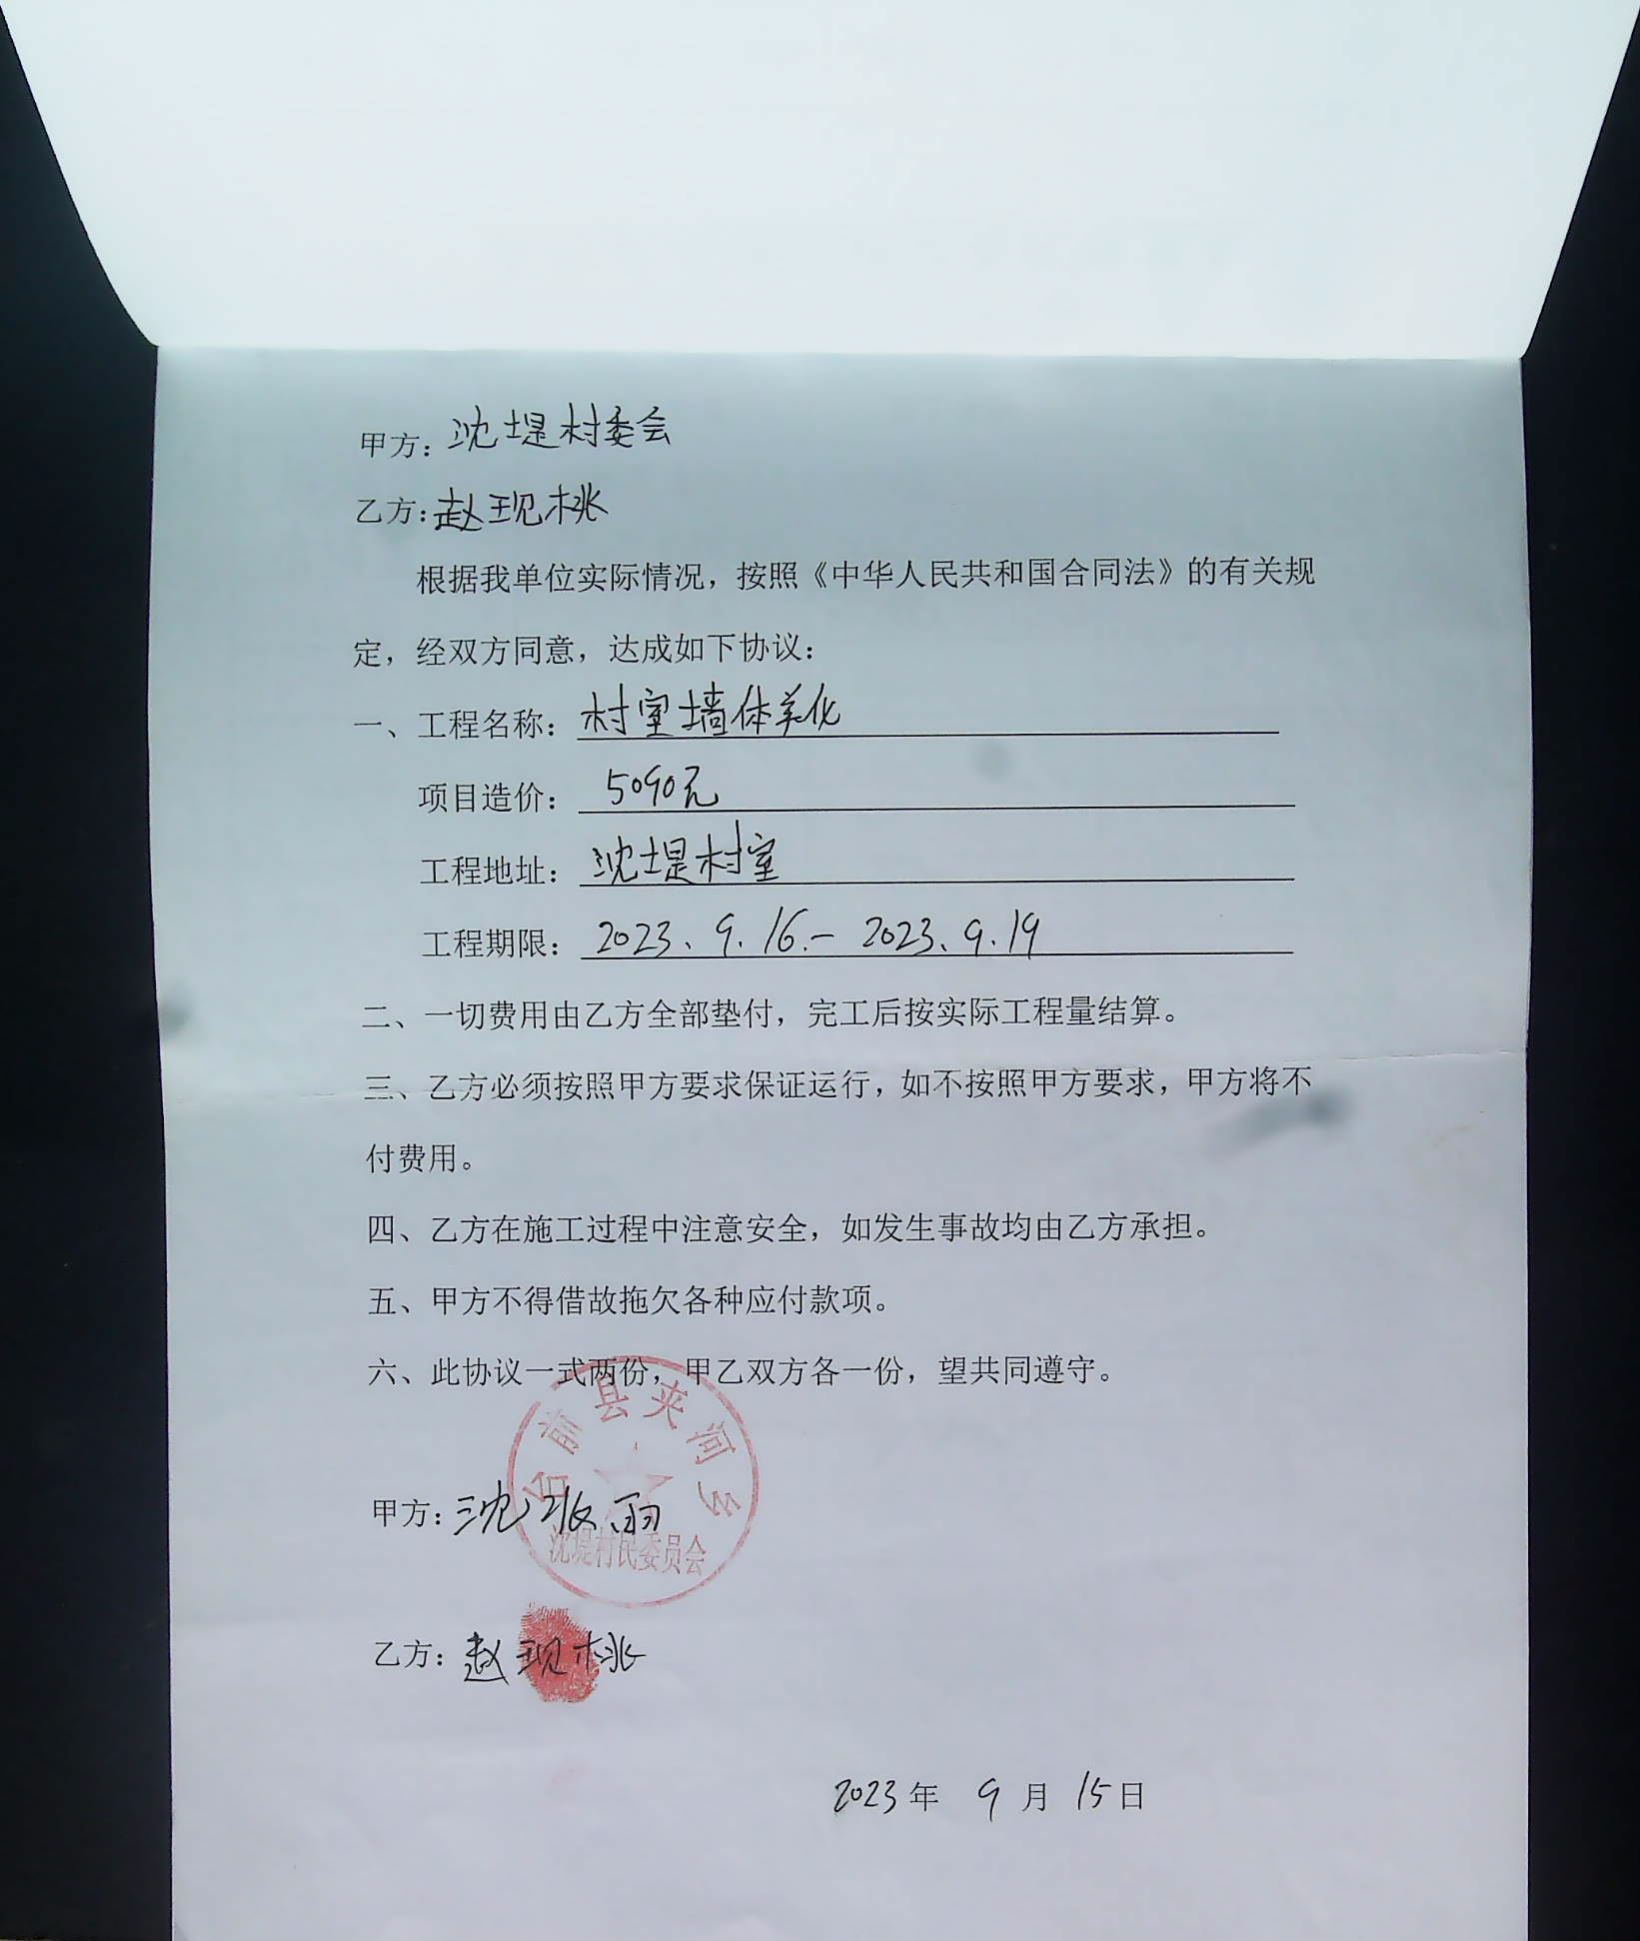 甲方：沈堤村委会
乙方：赵现桃
根据我单位实际情况，按照《中华人民共和国合同法》的有关规
定，经双方同意，达成如下协议：
一、工程名称：村室墙体美化
项目造价：5090元
工程地址：沈堤村室
工程期限：2023、9.16.－2023、9.19
二、一切费用由乙方全部垫付，完工后按实际工程量结算。
三、乙方必须按照甲方要求保证运行，如不按照甲方要求，甲方将不
付费用。
四、乙方在施工过程中注意安全，如发生事故均由乙方承担。
五、甲方不得借故拖欠各种应付款项。
六、此协议一式两份，甲乙双方各一份，望共同遵守。
台前县夹河乡
甲方：沈 雨
沈堤村民委员会
乙方：赵现桃
2023年 9月 15日